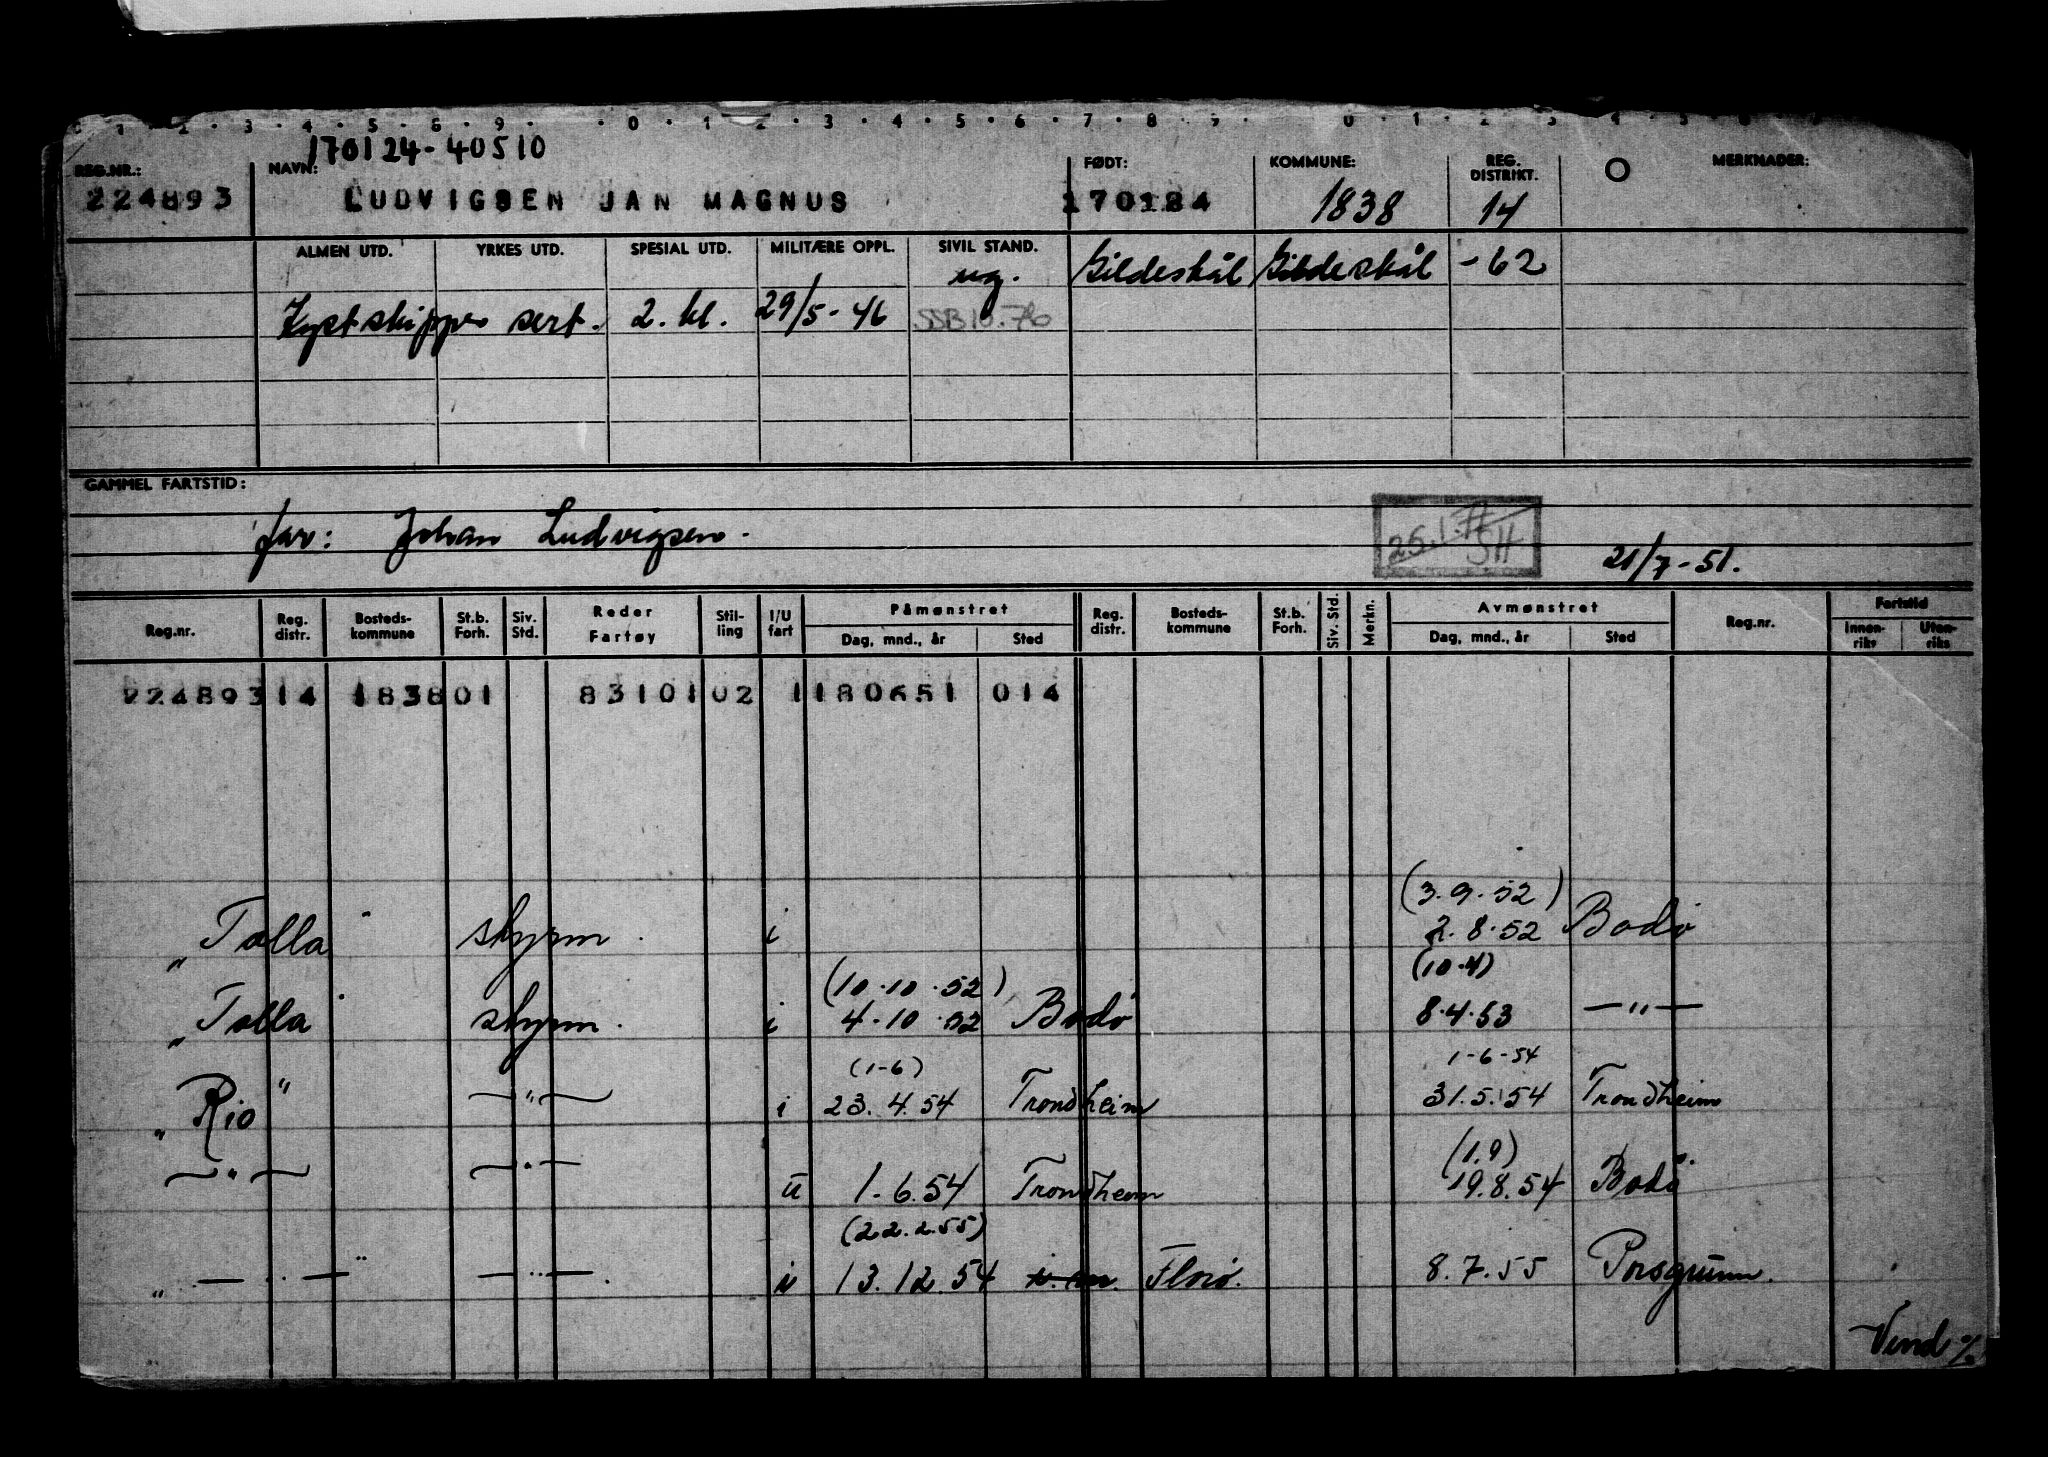 170124-40510
REG.NR.: NAVN: FØDT: KOMMUNE: REG. DISTRIKT. MERKNADER:
224893 LUDVIGSEN JAN MAGNUS 170124 1838 14
ALMEN UTD. YRKES UTD. SPESIAL UTD. MILITÆRE OPPL. SIVIL STAND.
ug. Gildeskål Gildeskål -62
Kystskipper sert. 2. kl. 29/5-46 SSB10.76
GAMMEL FARTSTID:
far: Johan Ludvigsen. 25.1. SH
21/7-51.
Reg.nr. Reg. distr. Bosteds-kommune St.b. Forh. Siv. Std. Reder Fartøy Stil-ling I/U fart Påmønstret Dag, mnd., år Sted Reg. distr. Bosteds-kommune St.b. Forh. Siv. Std. Merkn. Avmønstret Dag, mnd., år Sted Reg.nr. Fartstid Innen-riks Uten-riks
224893 14 1838 01 83101 02 1 180651 014
(3.9.52)
"Tolla" skyrm. i 2.8.52 Bodø
(10.10.52) (10.4)
"Tolla" skyrm. i 4.10.52 Bodø 8.4.53 —"—
(1-6) 1-6-54
"Rio" —"— i 23.4.54 Trondheim 31.5.54 Trondheim
(1.9)
—"— —"— u 1.6.54 Trondheim 19.8.54 Bodø
(22.2.55)
"—"—" —"—. u 13.12.54 Florø. 8.7.55 Porsgrunn.
Vend %